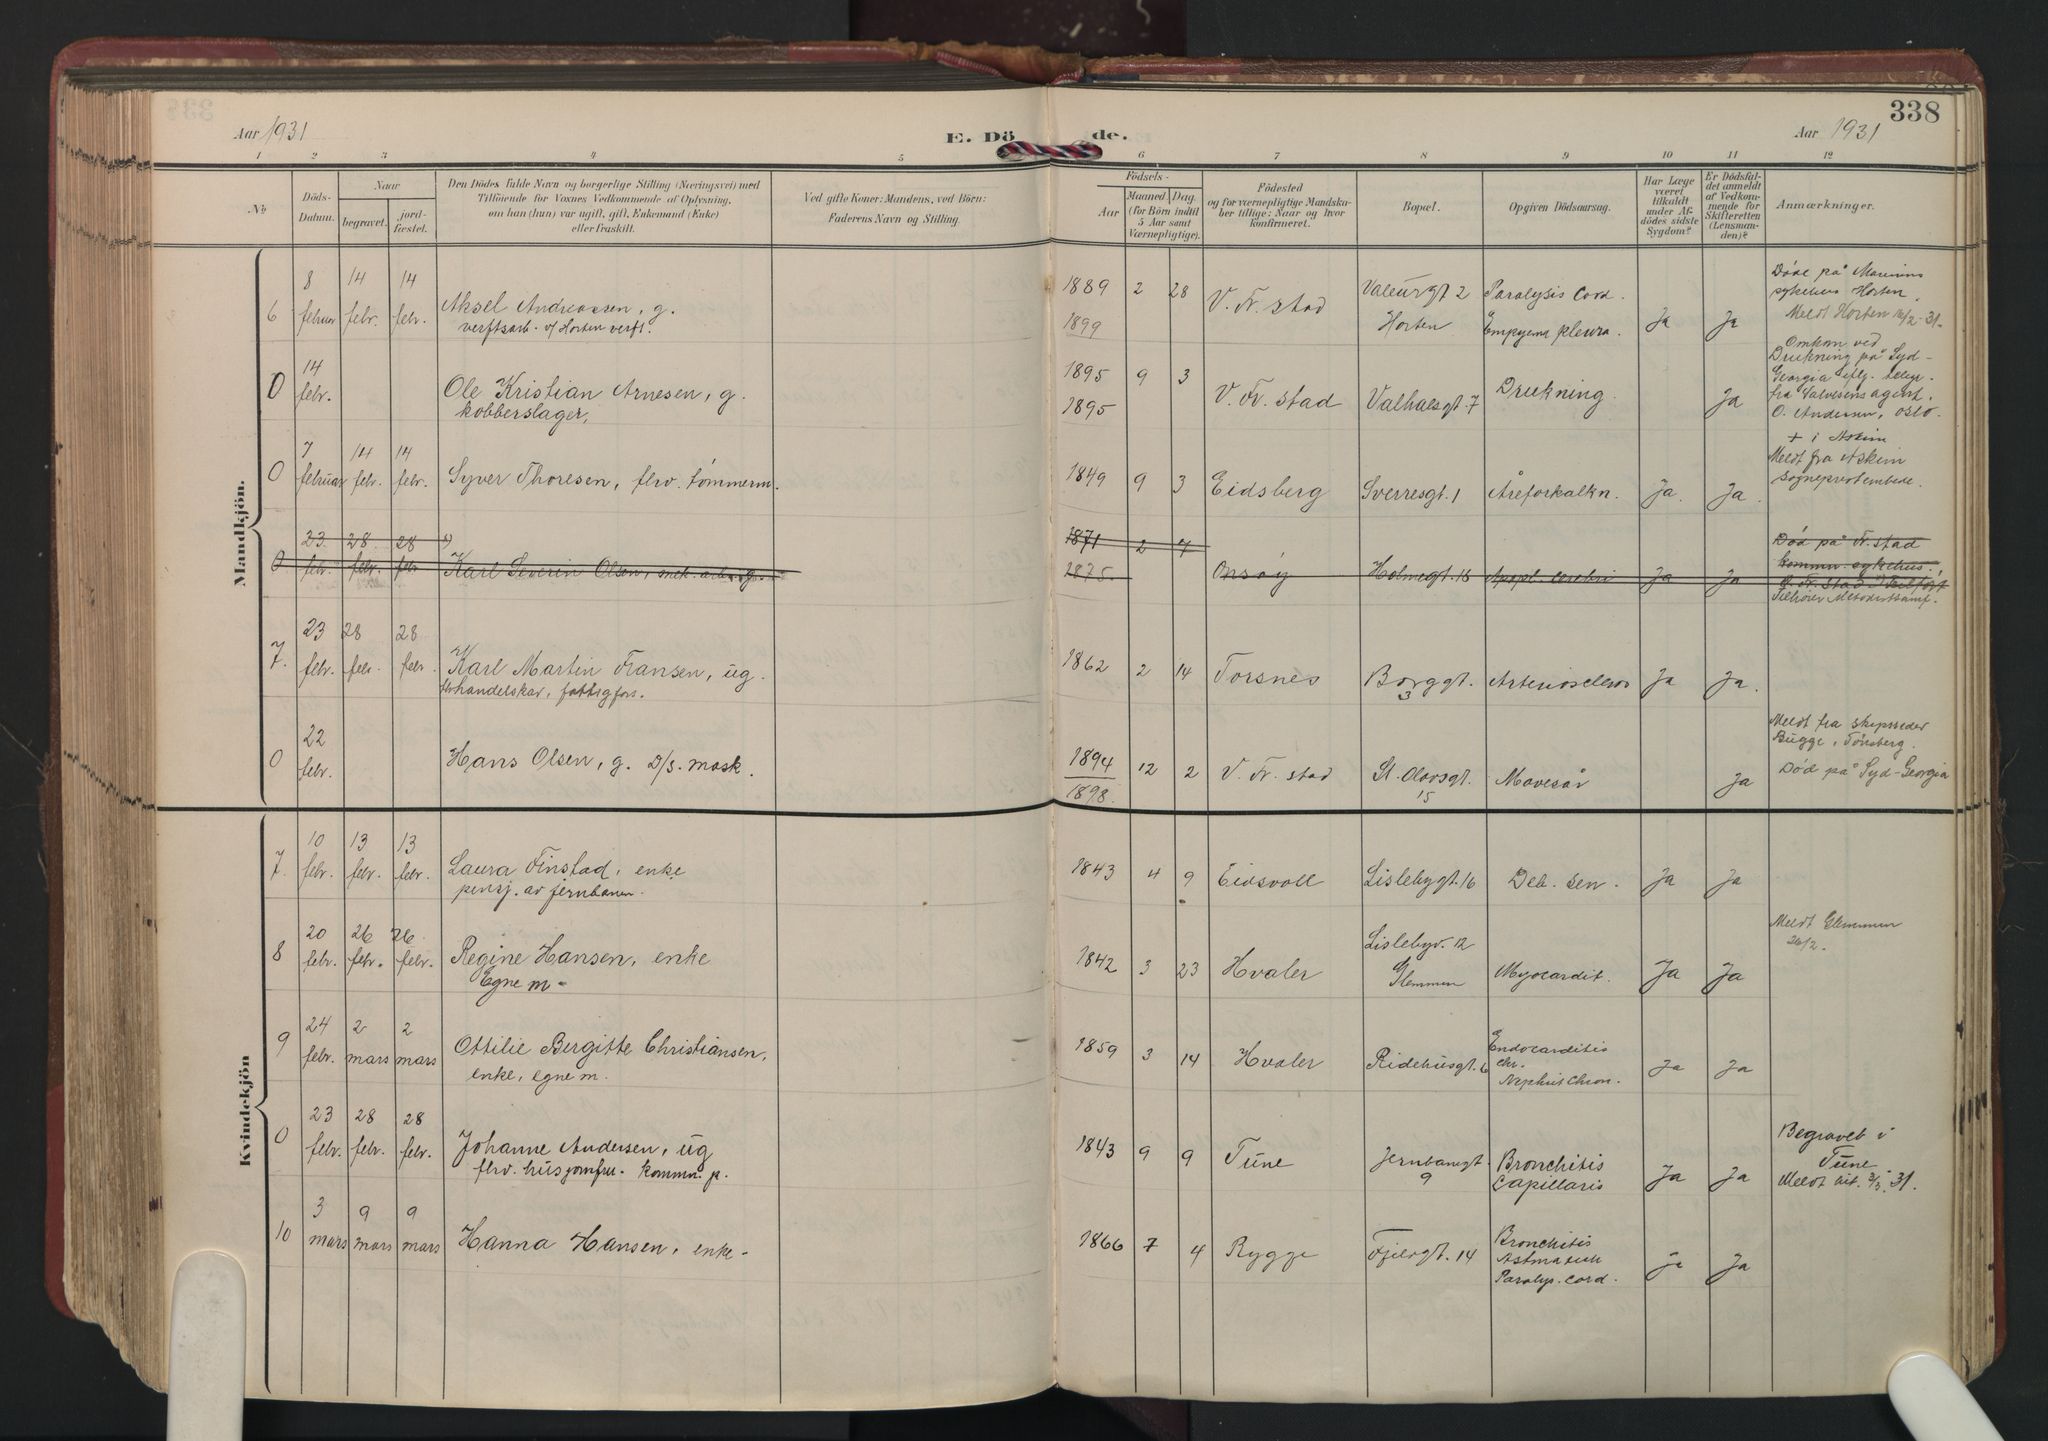 338
Aar 1931
E. Dö
de.
Aar 1931
1 2 3 4 5 6 7 8 9 10 11 12
No
Döds-
Datum.
Naar
begravet.
jord-
fæstet.
Den Dödes fulde Navn og borgerlige Stilling (Næringsvei) med
Tilföiende for Voxnes Vedkommende af Oplysning,
om han (hun) var ugift, gift, Enkemand (Enke)
eller fraskilt.
Ved gifte Koner: Mandens, ved Börn:
Faderens Navn og Stilling.
Födsels-
Aar
Maaned Dag.
(for Börn indtil
5 Aar samt
Værnepligtige).
Födested
og for værnepligtige Mandska-
ber tillige: Naar og hvor
konfirmeret.
Bopæl.
Opgiven Dödsaarsag.
Har Læge
været
tilkaldt
under Af-
dödes sidste
Sygdom?
Er Dödsfal-
det anmeldt
af Vedkom-
mende for
Skifteretten
(Lensman-
den)?
Anmærkninger.
Mandkjön.
6
8 14 14
februar febr. febr.
Aksel Andreassen, g.
verftsarb. v/ Horten verft.
1889 2 28
1899
V. Fr. stad
Valeurgt 2
Horten
Paralysis Cord.
Empyema pleura.
Ja Ja
Döde på Marinens
sykehus Horten.
Meldt Horten 16/2-31-
0
14
febr.
Ole Kristian Arnesen, g.
kobberslager,
1895 9 3
1895
V. Fr. stad
Valhalsgt. 7
Drukning.
Ja
Omkom ved
Drukning på Syd-
Georgia
agent,
O. Andersen, Oslo.
0
7 14 14
februar febr. febr.
Syver Thoresen, fhv. tömmerm.
1849 9 3
Eidsberg
Sverresgt. 1
Åreforkalkn.
Ja. Ja.
+ i Askim
Meldt fra Askim
sogneprestembede.
0
23. 28. 28
febr. febr. febr
Karl Severin Olsen, mek. arb. g.
1871 2 7
1875.
Onsöy
Holmegt. 18
Apopl. cerebri
Ja Ja
Död på Fr. stad
kommun. sykehus.
Tilhörer Metodistsamf.
7.
23 28 28
febr. febr. febr.
Karl Martin Fransen, ug.
fhv handelskar, fattigfors.
1862 2 14
Torsnes
Borggt.
3
Arterioscleros
Ja Ja.
0
22
febr.
Hans Olsen, g. D/s. mask.
1894 12 2
1898.
V. Fr. stad
St. Olavsgt.
15
Mavesår
Ja
Meldt fra skipsreder
Bugge, Tönsberg.
Död på Syd-Georgia
Kvindekjön
7.
10 13 13
febr. febr. febr.
Laura Finstad, enke
pensj. av jernbanen.
1843 4 9
Eidsvoll
Lislebygt. 16
Deb. sen.
Ja Ja
8
20 26 26.
febr. febr. febr.
Regine Hansen, enke
Egne m-
1842 3 23
Hvaler
Lislebyv. 12
Glemmen
Myocardit.
Ja Ja
Meldt Glemmen
26/2.
9
24 2 2
febr. mars mars
Ottilie Bergitte Christiansen,
enke, egne m.
1859 3 14
Hvaler
Ridehusgt. 6
Endocarditis
chr.
Nephrit Chron.
Ja Ja
0
23 28 28
febr. febr. febr.
Johanne Andersen, ug
fhv. husjomfru. kommu. p.
1843 9 9
Tune
Jernbanegt.
9
Bronchitis
Capillaris
Ja Ja
Begravet i
Tune
Meldt hit. 3/3. 31.
10
3 9 9
mars mars mars
Hanna Hansen, enke-
1866 7 4
Rygge
Fjeldgt. 14
Bronchitis
Astmatick
Paralys. cord.
Ja Ja